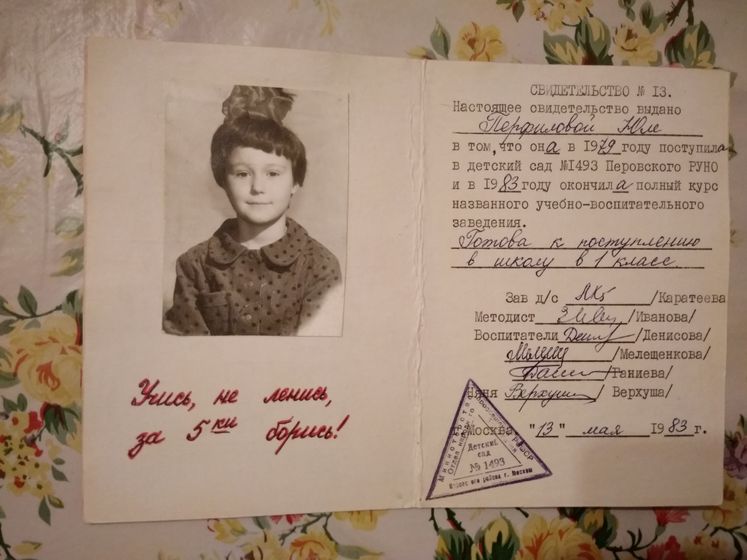 Учись, не ленись,
за 5ки борись!
СВИДЕТЕЛЬСТВО № 13.
Настоящее свидетельство выдано
Перфиловой Юле
в том, что она в 1979 году поступила
в детский сад №1493 Перовского РУНО
и в 1983 году окончила полный курс
названного учебно-воспитательного
заведения.
Готова к поступлению
в школу в 1 класс.
Зав д/с /Каратеева
Методист /Иванова/
Воспитатели /Денисова/
/Мелещенкова/
/Ганиева/
Няня Верхуша / Верхуша/
г. Москва "13" мая 1983 г.
Министерство просвещения РСФСР
Отдел народного
Детский
сад
№ 1493
района г. Москвы